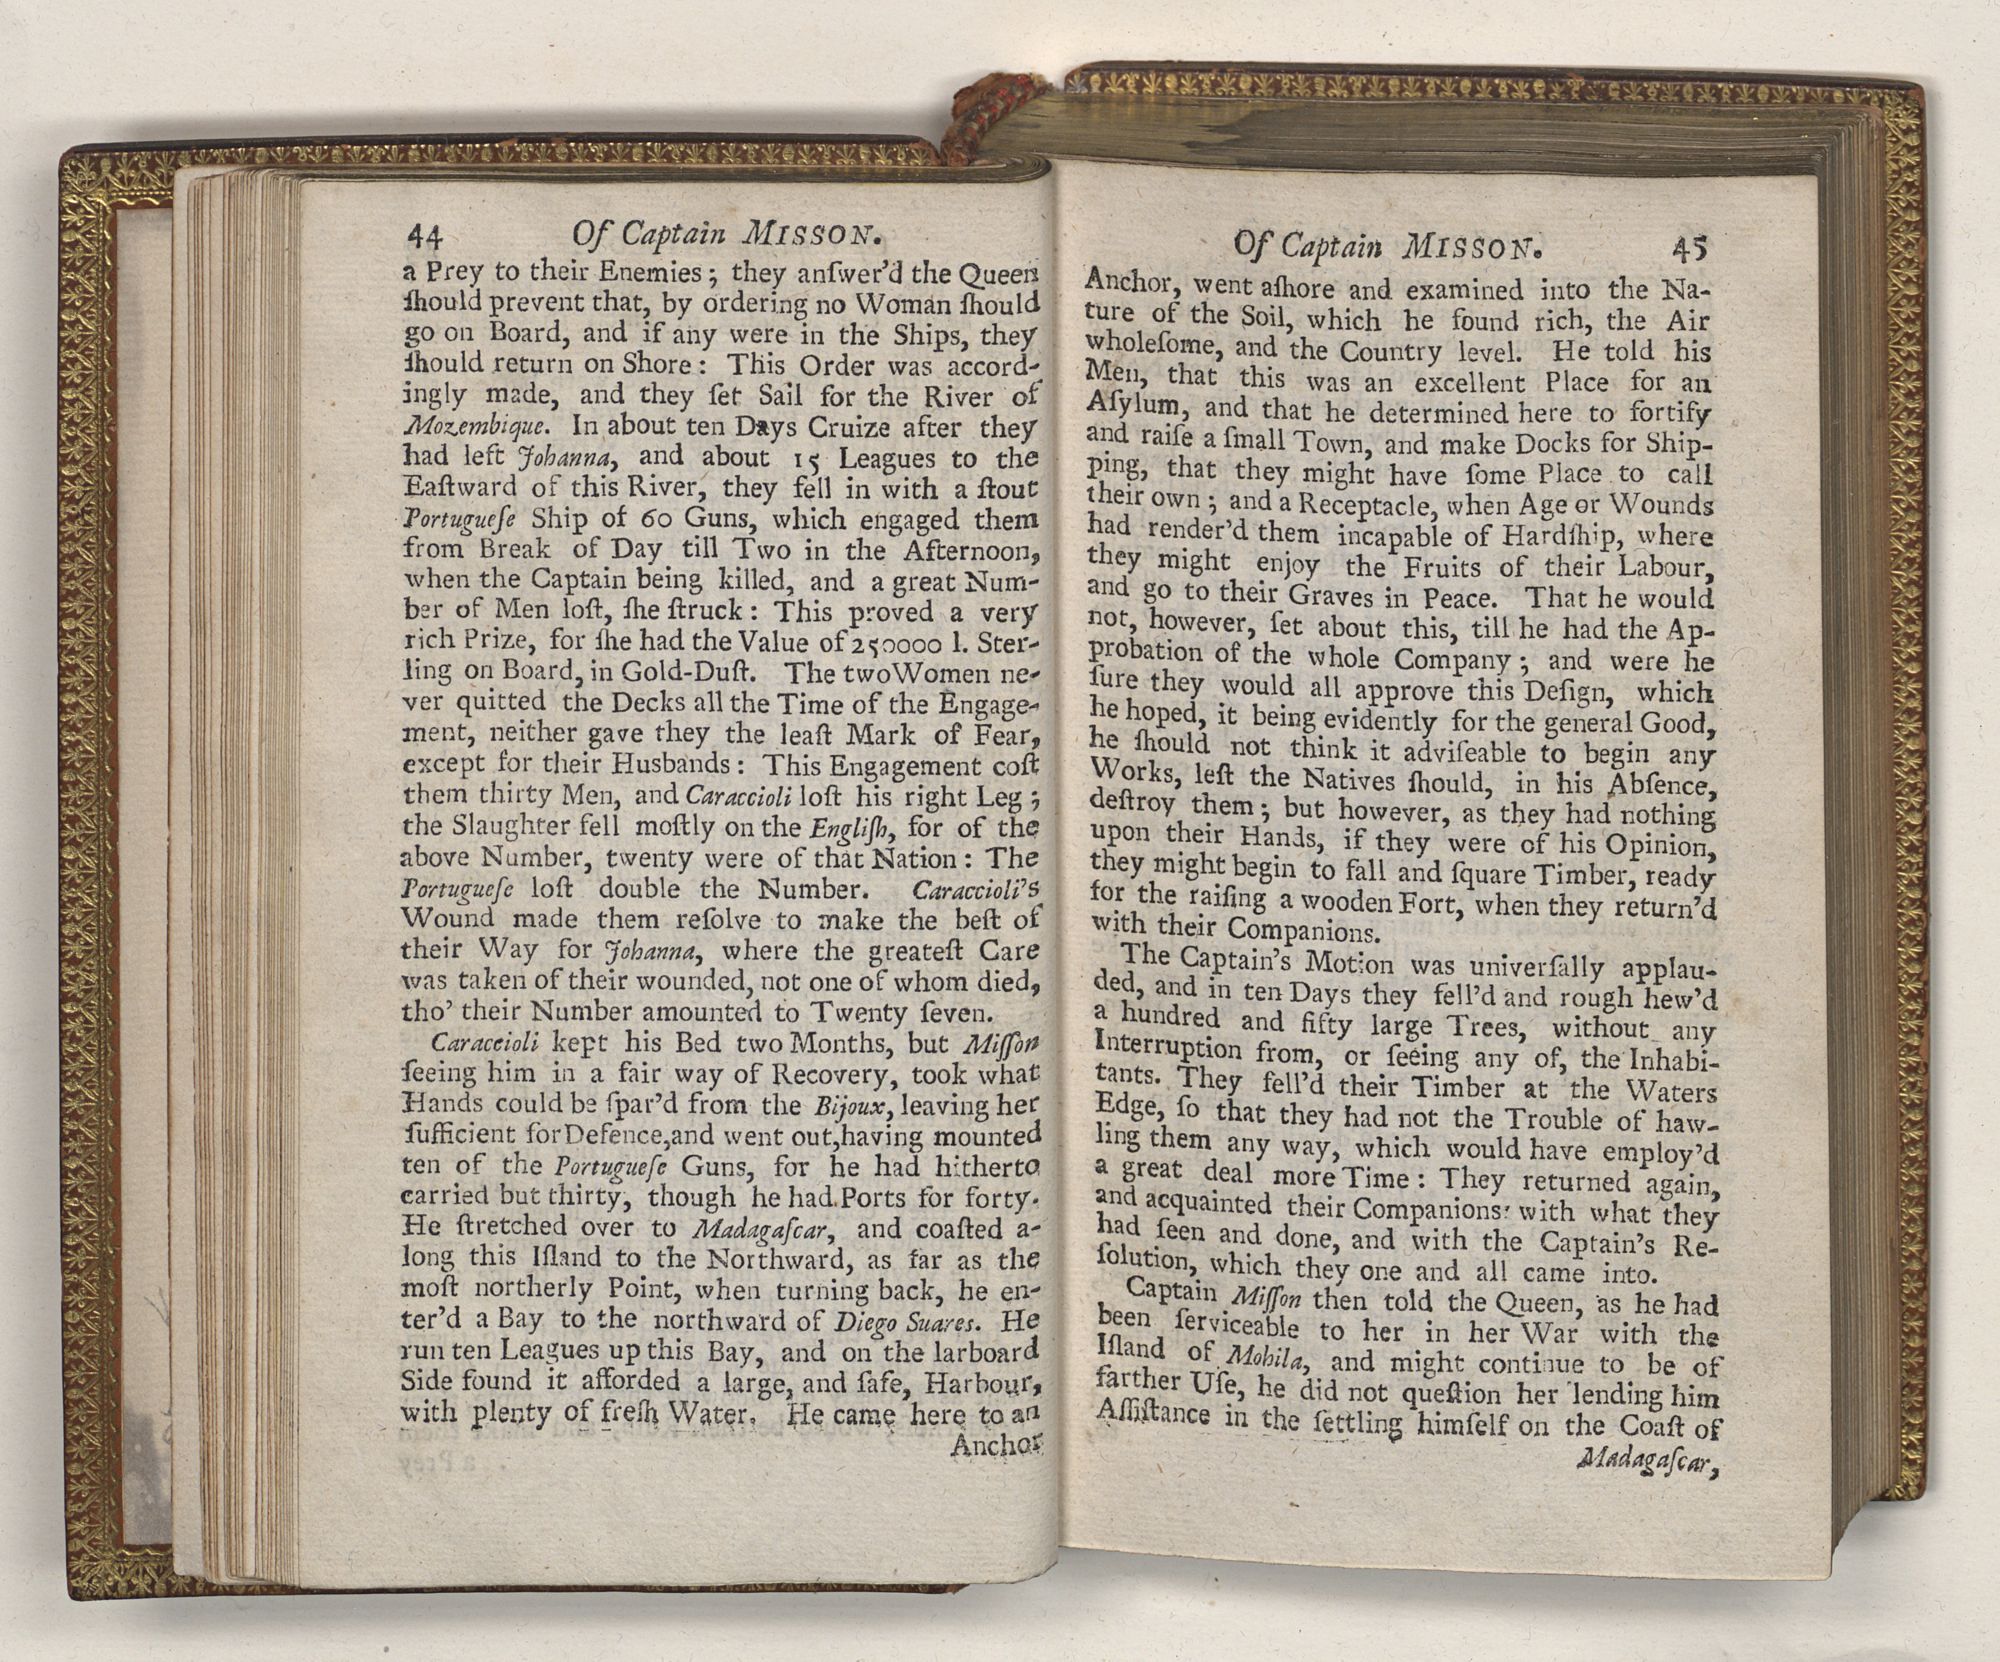 44 Of Captain MISSON.
a Prey to their Enemies; they anſwer'd the Queen
ſhould prevent that, by ordering no Woman ſhould
go on Board, and if any were in the Ships, they
ſhould return on Shore: This Order was accord-
ingly made, and they ſet Sail for the River of
Mozembique. In about ten Days Cruize after they
had left Johanna, and about 15 Leagues to the
Eaſtward of this River, they fell in with a ſtout
Portugueſe Ship of 60 Guns, which engaged them
from Break of Day till Two in the Afternoon,
when the Captain being killed, and a great Num-
ber of Men loſt, ſhe ſtruck: This proved a very
rich Prize, for ſhe had the Value of 250000 l. Ster-
ling on Board, in Gold-Duſt. The two Women ne-
ver quitted the Decks all the Time of the Engage-
ment, neither gave they the leaſt Mark of Fear,
except for their Husbands: This Engagement coſt
them thirty Men, and Caraccioli loſt his right Leg;
the Slaughter fell moſtly on the Engliſh, for of the
above Number, twenty were of that Nation: The
Portugueſe loſt double the Number. Caraccioli's
Wound made them reſolve to make the beſt of
their Way for Johanna, where the greateſt Care
was taken of their wounded, not one of whom died,
tho' their Number amounted to Twenty ſeven.
Caraccioli kept his Bed two Months, but Miſſon
ſeeing him in a fair way of Recovery, took what
Hands could be ſpar'd from the Bijoux, leaving her
ſufficient for Defence, and went out, having mounted
ten of the Portugueſe Guns, for he had hitherto
carried but thirty, though he had Ports for forty.
He ſtretched over to Madagaſcar, and coaſted a-
long this Iſland to the Northward, as far as the
moſt northerly Point, when turning back, he en-
ter'd a Bay to the northward of Diego Suares. He
run ten Leagues up this Bay, and on the larboard
Side found it afforded a large, and ſafe, Harbour,
with plenty of freſh Water. He came here to an
Anchor
Of Captain MISSON. 45
Anchor, went aſhore and examined into the Na-
ture of the Soil, which he found rich, the Air
wholeſome, and the Country level. He told his
Men, that this was an excellent Place for an
Aſylum, and that he determined here to fortify
and raiſe a ſmall Town, and make Docks for Ship-
ping, that they might have ſome Place to call
their own; and a Receptacle, when Age or Wounds
had render'd them incapable of Hardſhip, where
they might enjoy the Fruits of their Labour,
and go to their Graves in Peace. That he would
not, however, ſet about this, till he had the Ap-
probation of the whole Company; and were he
ſure they would all approve this Deſign, which
he hoped, it being evidently for the general Good,
he ſhould not think it adviſeable to begin any
Works, leſt the Natives ſhould, in his Abſence,
deſtroy them; but however, as they had nothing
upon their Hands, if they were of his Opinion,
they might begin to fall and ſquare Timber, ready
for the raiſing a wooden Fort, when they return'd
with their Companions.
The Captain's Motion was univerſally applau-
ded, and in ten Days they fell'd and rough hew'd
a hundred and fifty large Trees, without any
Interruption from, or ſeeing any of, the Inhabi-
tants. They fell'd their Timber at the Waters
Edge, ſo that they had not the Trouble of haw-
ling them any way, which would have employ'd
a great deal more Time: They returned again,
and acquainted their Companions with what they
had ſeen and done, and with the Captain's Re-
ſolution, which they one and all came into.
Captain Miſſon then told the Queen, as he had
been ſerviceable to her in her War with the
Iſland of Mohila, and might continue to be of
farther Uſe, he did not queſtion her lending him
Aſſiſtance in the ſettling himſelf on the Coaſt of
Madagaſcar,